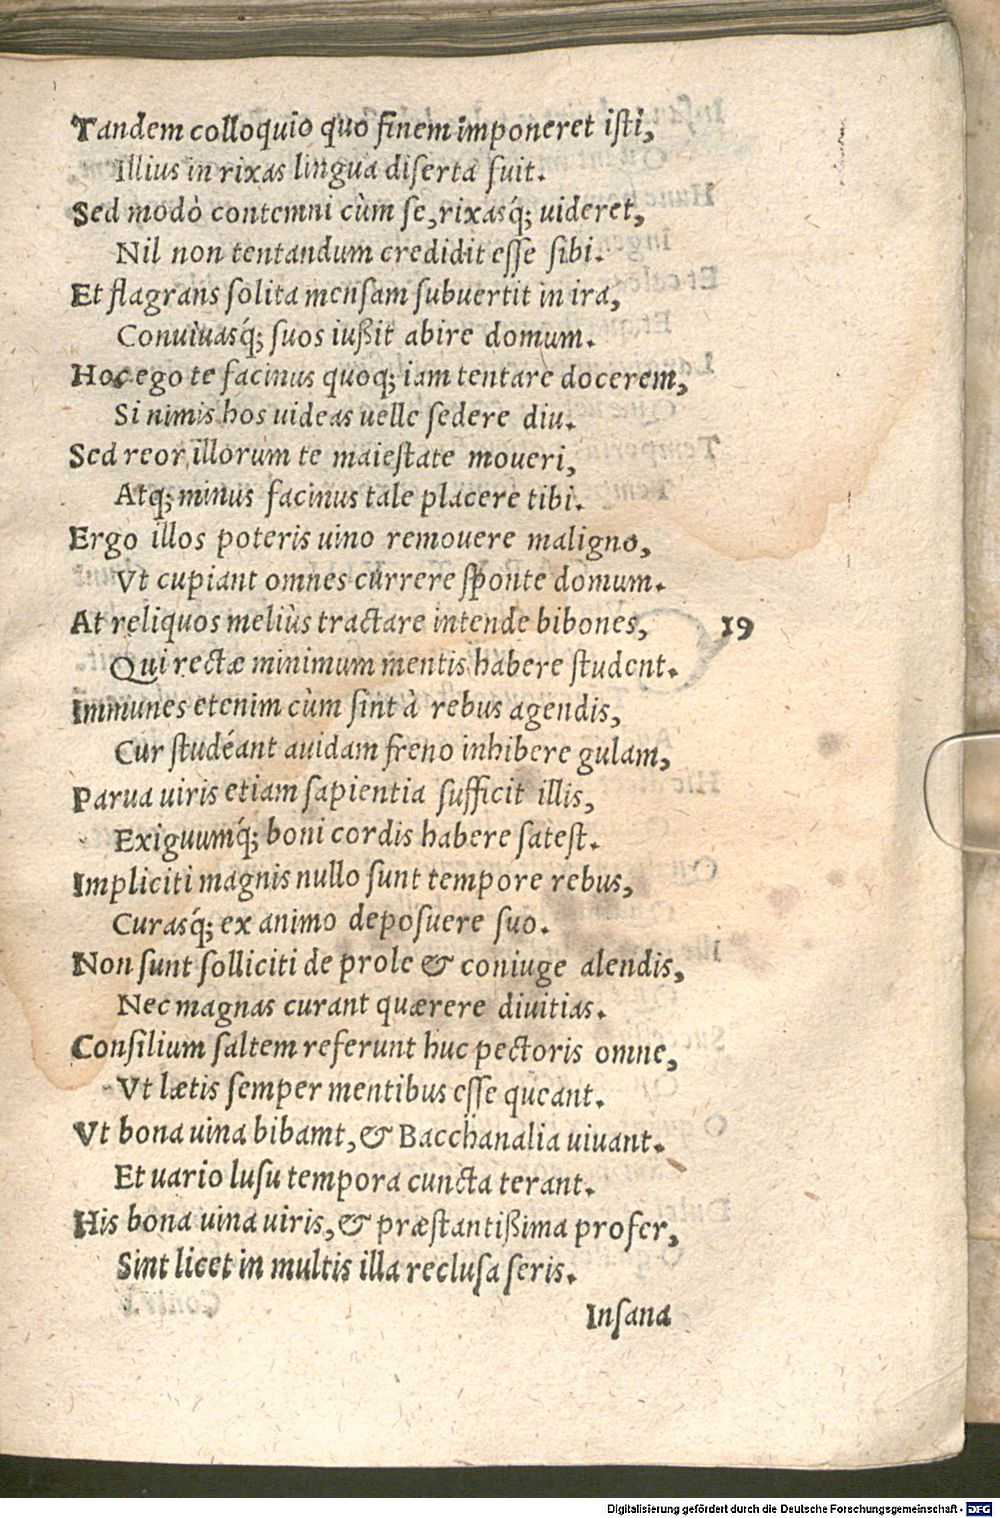 Tandem colloquio quo finem imponeret isti,
Illius in rixas lingua diserta fuit.
Sed modò contemni cùm se, rixasq́; uideret,
Nil non tentandum credidit esse sibi.
Et flagrans solita mensam subuertit in ira,
Conuiuasq́; suos iußit abire domum.
Hoc ego te facinus quoq; iam tentare docerem,
Si nimis hos uideas uelle sedere diu.
Sed reor illorum te maiestate moueri,
Atq; minus facinus tale placere tibi.
Ergo illos poteris uino remouere maligno,
Vt cupiant omnes currere sponte domum.
At reliquos meliùs tractare intende bibones, 19
Qui rectæ minimum mentis habere student.
Immunes etenim cùm sint à rebus agendis,
Cur studéant auidam freno inhibere gulam,
Parua uiris etiam sapientia sufficit illis,
Exiguumq́; boni cordis habere satest.
Impliciti magnis nullo sunt tempore rebus,
Curasq́; ex animo deposuere suo.
Non sunt solliciti de prole & coniuge alendis,
Nec magnas curant quærere diuitias.
Consilium saltem referunt huc pectoris omne,
Vt lætis semper mentibus esse queant.
Vt bona uina bibamt, & Bacchanalia uiuant.
Et uario lusu tempora cuncta terant.
His bona uina uiris, & præstantißima profer,
Sint licet in multis illa reclusa seris.
Insana
Digitalisierung gefördert durch die Deutsche Forschungsgemeinschaft - DFG